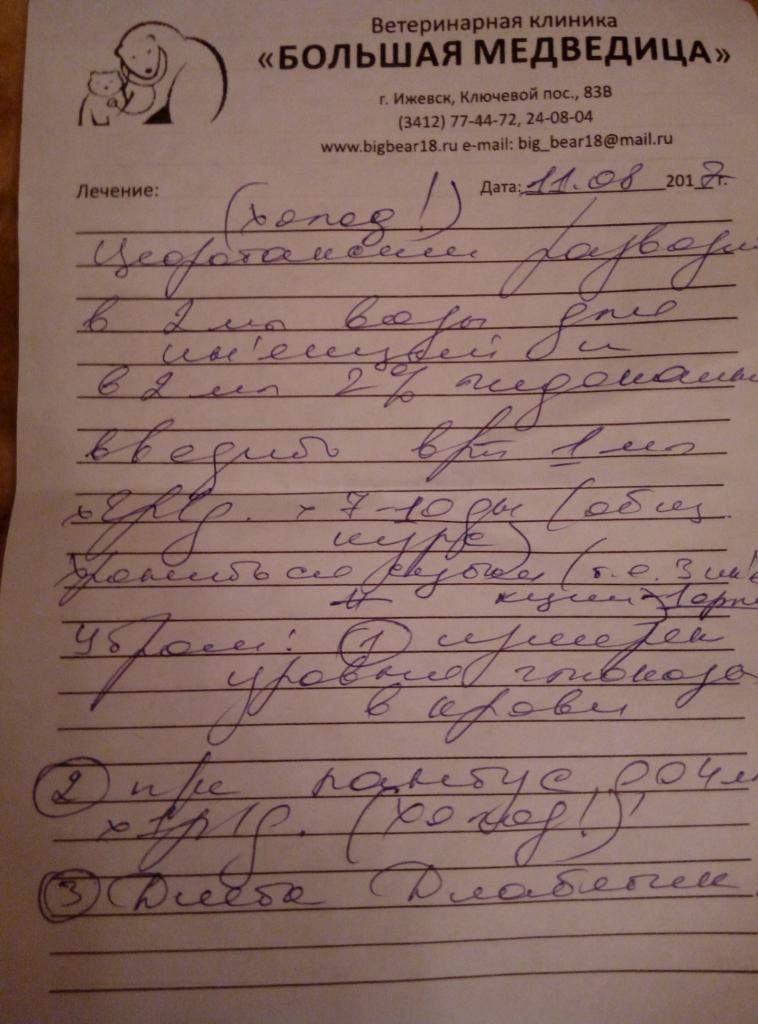 Ветеринарная клиника
«БОЛЬШАЯ МЕДВЕДИЦА»
г. Ижевск, Ключевой пос., 83В
(3412) 77-44-72, 24-08-04
www.bigbear18.ru e-mail: big_bear18@mail.ru
Лечение: Дата: 11.08 2017г.
(холод!)
Цефотаксим
в 2 мл воды для
инъекций и
в 2 мл 2%
вводить в/м 1 мл
x 2р/д. x 7-10 дн (общ.
курс)
сутки (т.е. 3
Утром: ① измерен
уровня глюкозы
в крови
② лантус 0,04
x 1р/д. (холод!)
③ Диета Диабетик